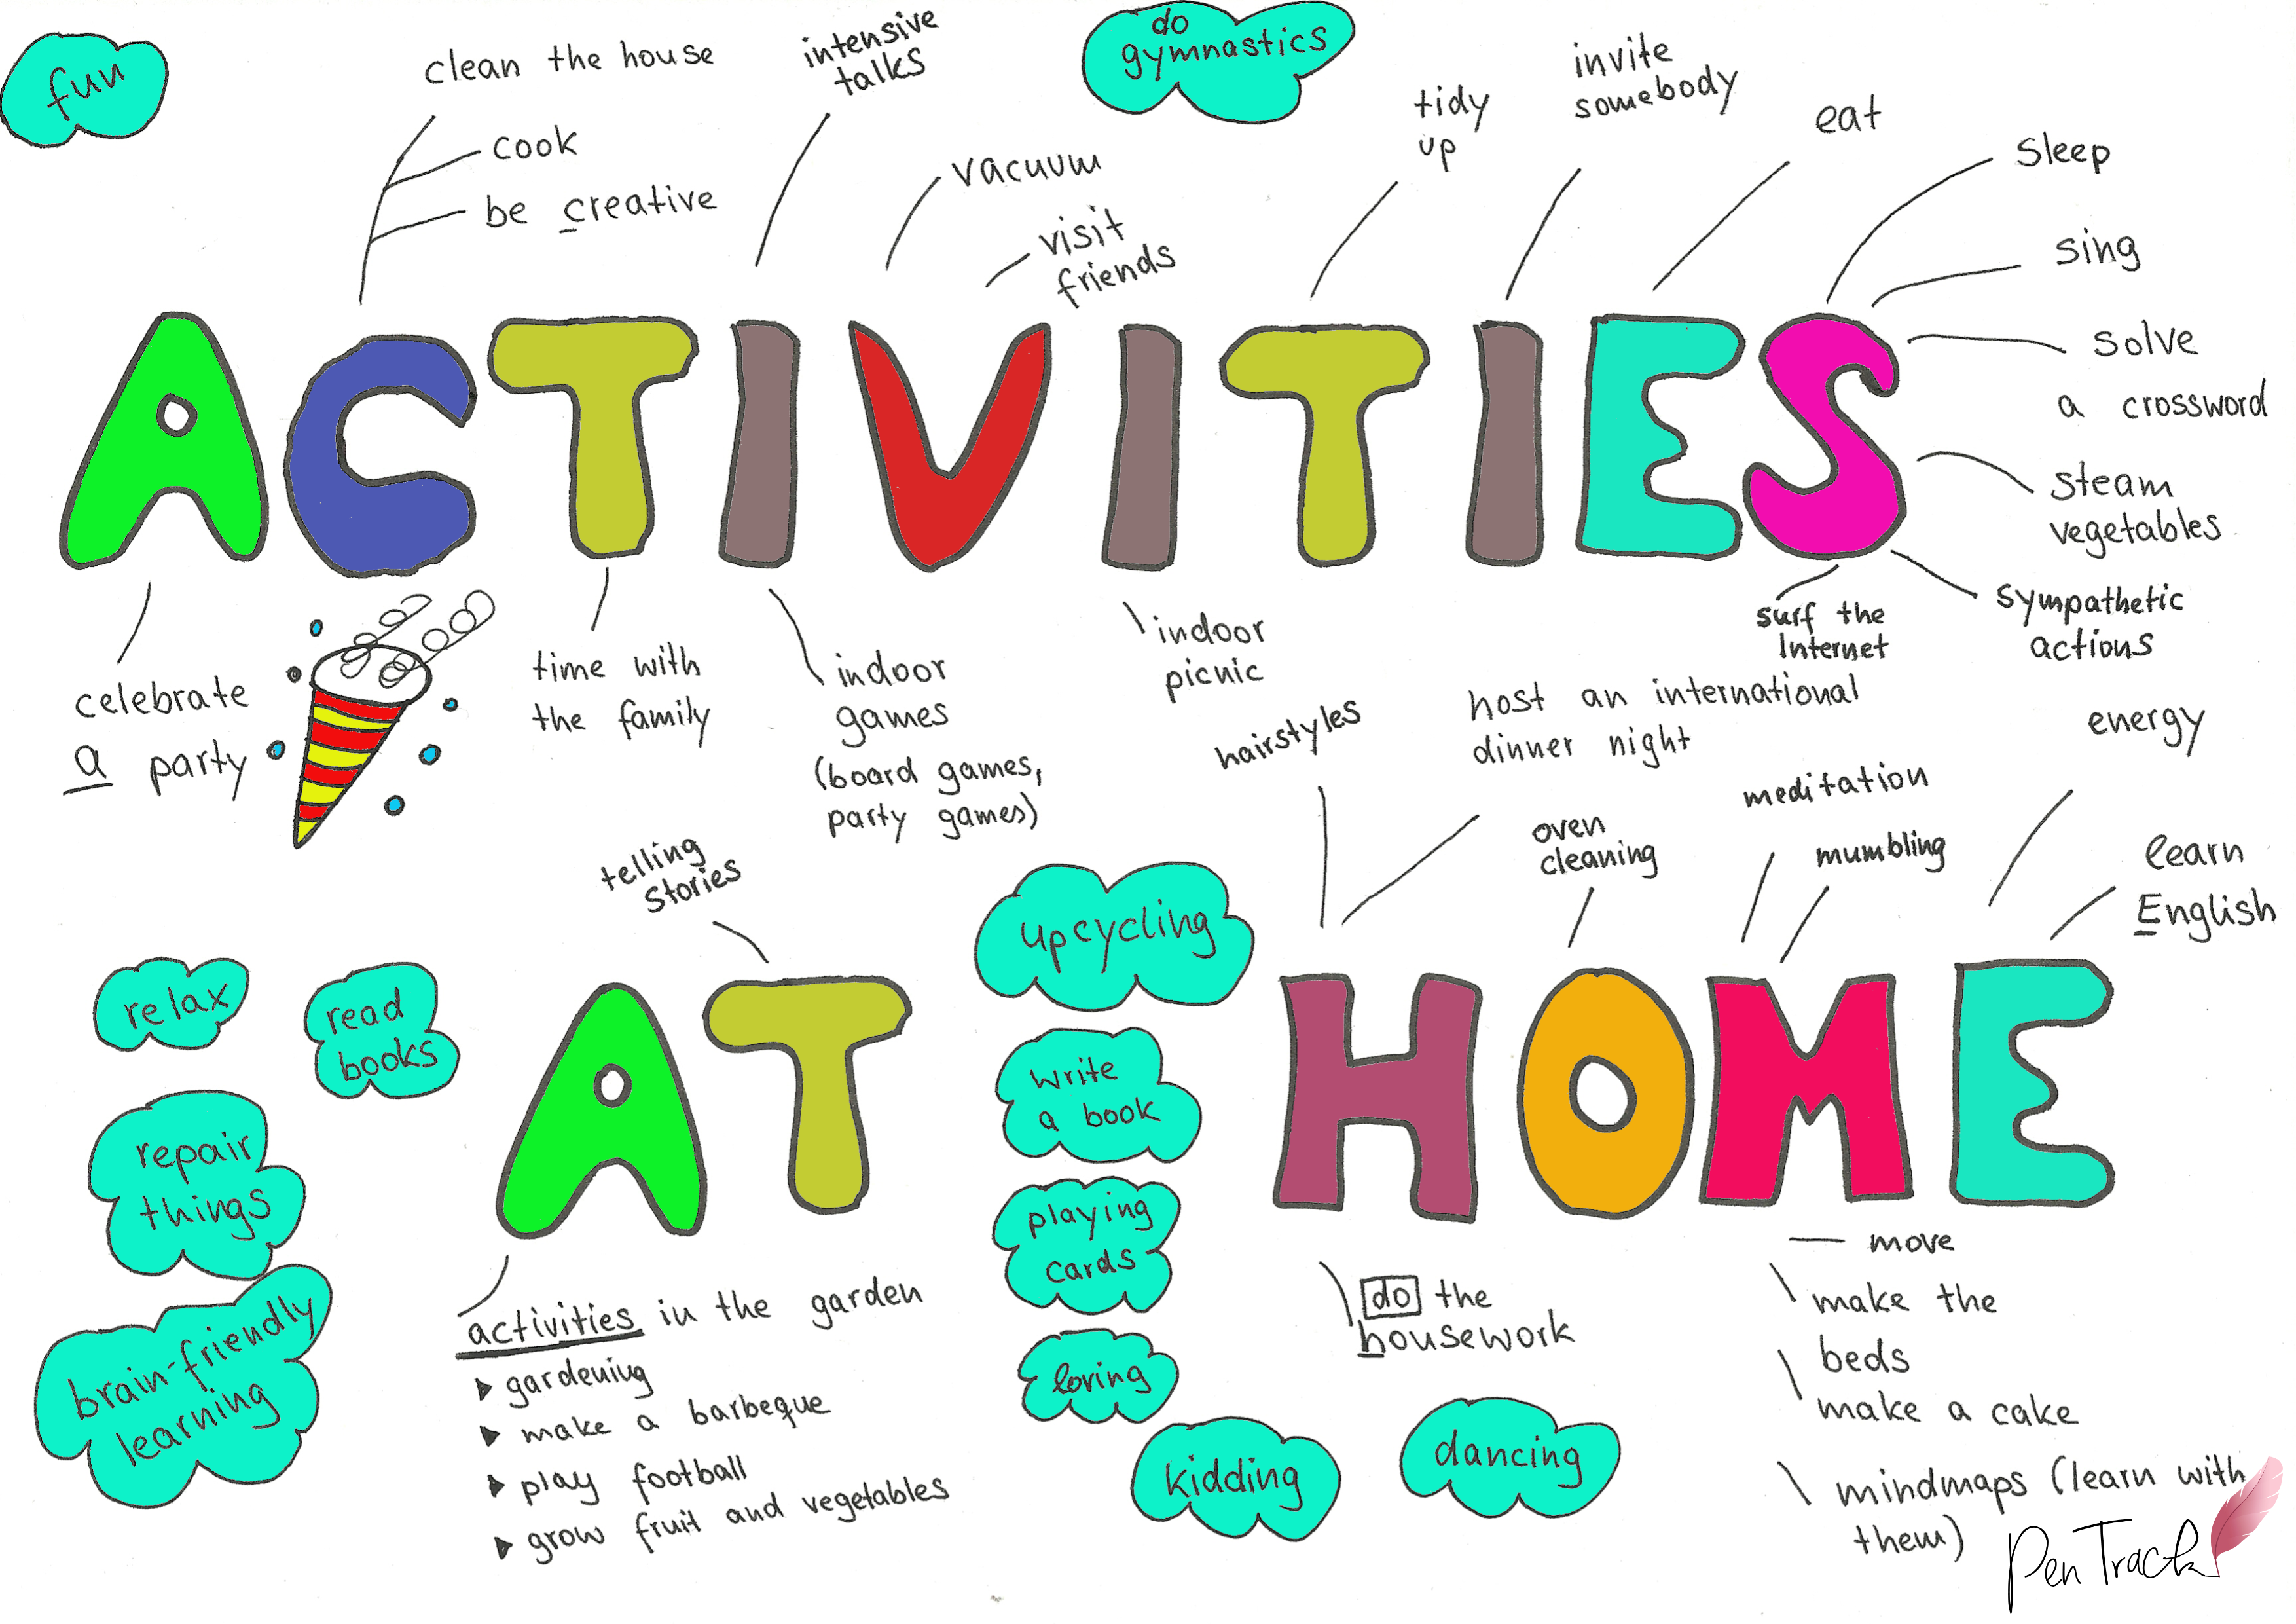 fun
clean the house
cook
be creative
intensive
talks
do
gymnastics
vacuum
visit
friends
tidy
up
invite
somebody
eat
sleep
sing
solve
a crossword
steam
vegetables
sympathetic
actions
surf the
Internet
ACTIVITIES
celebrate
a party
time with
the family
indoor
games
(board games,
party games)
indoor
picnic
hairstyles
host an international
dinner night
oven
cleaning
meditation
mumbling
energy
learn
English
telling
stories
relax
read
books
repair
things
brain-friendly
learning
AT HOME
upcycling
write
a book
playing
cards
loving
kidding
dancing
activities in the garden
gardening
make a barbeque
play football
grow fruit and vegetables
do the
housework
move
make the
beds
make a cake
mindmaps (learn with
them)
Pen Track